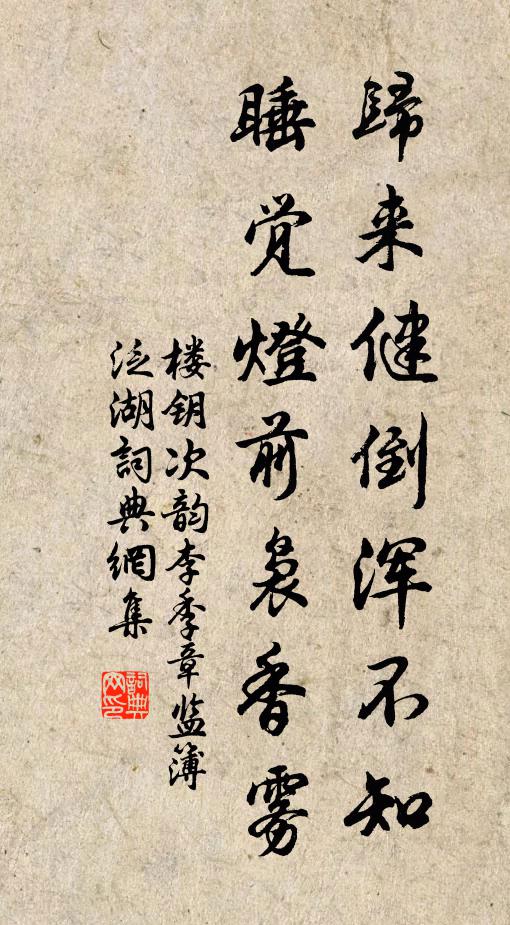 歸来健倒浑不知
睡觉燈前袅香雾
楼钥次韵李季章监簿
泛湖詞典網集
詞典网印